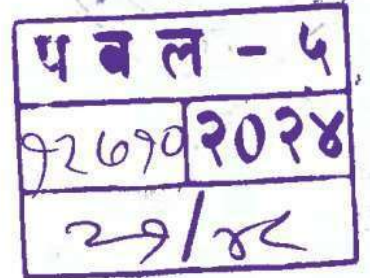 पवल - ५
१२७१० २०२४
२१/४८